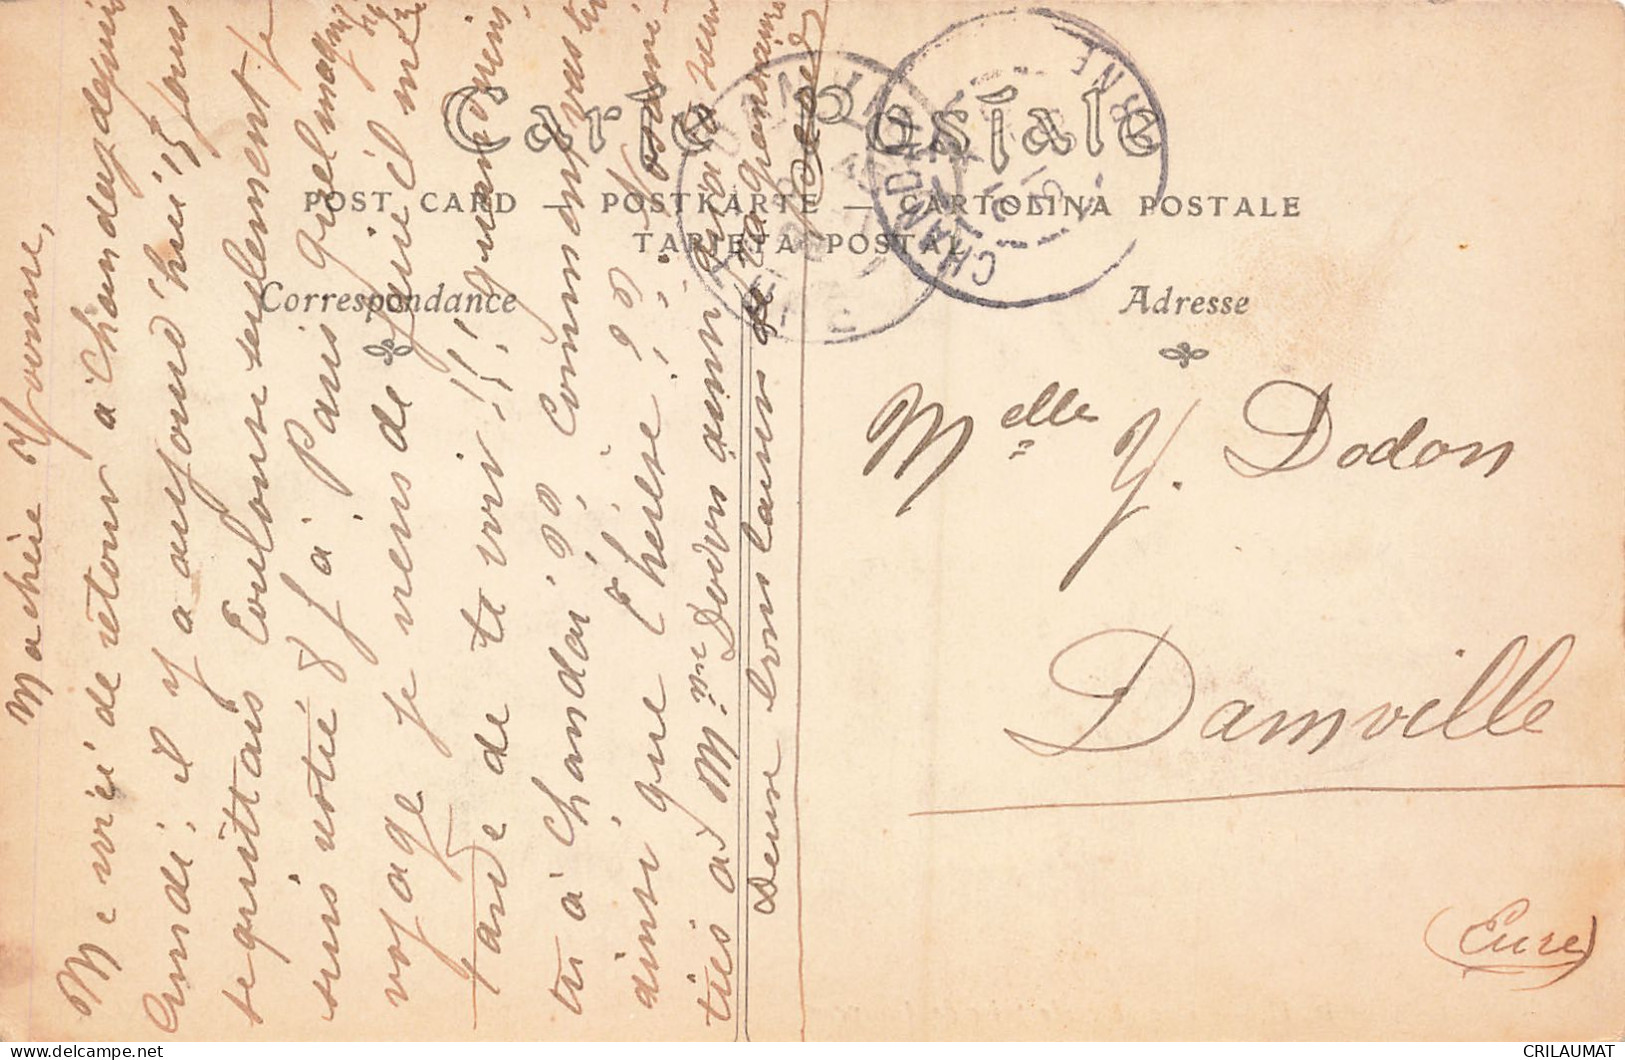 Carte Postale
POST CARD — POSTKARTE — CARTOLINA POSTALE
TARJETA POSTAL
Correspondance
Adresse
Ma chère Yvonne,
Me voici de retour à Chandai depuis
lundi; il y a aujourd'hui 15 jours
je quittais Toulouse seulement je
suis restée 8 j à Paris quel
voyage je viens de faire il me
tarde de te voir!!! quand viens
tu à Chandai?? Comment vas tu
ainsi que Thérèse?? 
ties à Mme Dodon ainsi qu'à
Denise
Melle Y. Dodon
Damville
(Eure)
CHANDAI
ORNE
DAMVILLE
CRILAUMAT